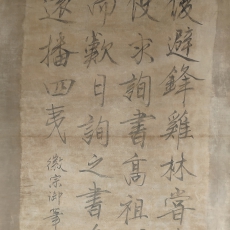 復避鋒雞林嘗
使求詢書高祖
而歎曰詢之書
遠播四夷
徽宗御筆